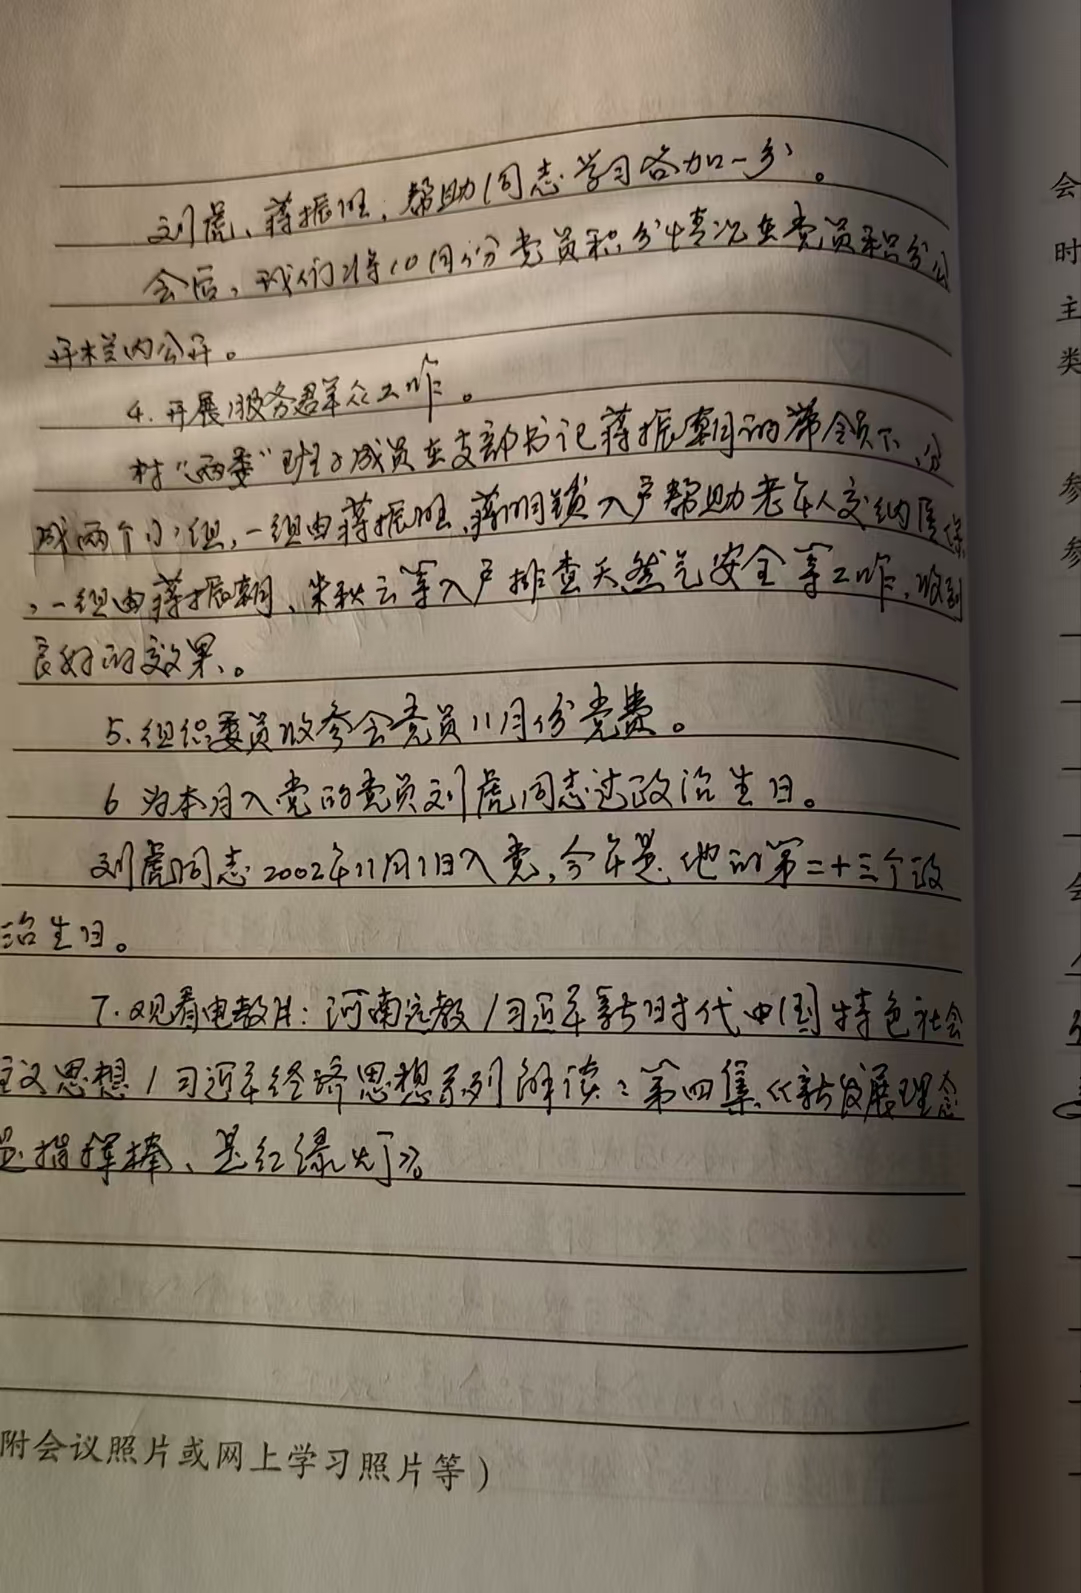 刘虎、蒋振旺,帮助同志学习各加一分。
会后,我们将10月份党员积分情况在党员积分公
开栏内公开。
4.开展服务群众工作。
村“两委”班子成员在支部书记蒋振朝的带领下,分
成两个小组,一组由蒋振旺、蒋明锁入户帮助老年人交纳医保
,一组由蒋振朝、朱秋云等入户排查天然气安全等工作,收到
良好的效果。
5.组织委员收参会党员11月份党费。
6 为本月入党的党员刘虎同志过政治生日。
刘虎同志2002年11月1日入党,今年是他的第二十三个政
治生日。
7.观看电教片:河南远教/习近平新时代中国特色社会
主义思想/习近平经济思想系列解读:第四集《新发展理念
是指挥棒、是红绿灯》。
附会议照片或网上学习照片等)
会
时
主
类
参
参
会